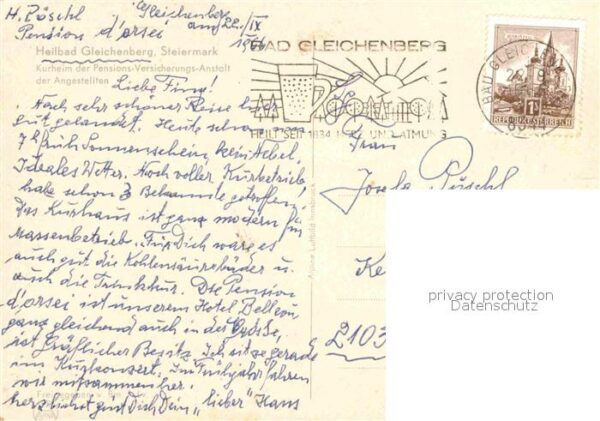 H. Pöschl Gleichenberg
am 22./IX
Pension d'orsei 1966
Heilbad Gleichenberg, Steiermark
Kurheim der Pensions-Versicherungs-Anstalt
der Angestellten
Liebe Finy!
Nach sehr schöner Reise hier
gut gelandet. Heute schon
7h früh Sonnenschein, kein Nebel.
Ideales Wetter. Noch voller Kurbetrieb
habe schon 3 Bekannte getroffen!
Das Kurhaus ist ganz modern für
Massenbetrieb. Für Dich wäre es
auch gut die Kohlensäurebäder u.
auch die Trinkkur. Die Pension
d'orsei ist unserem Hotel Bellevu
ganz gleichend auch in der Größe,
ist gräflicher Besitz. Ich sitze gerade
im Kurkonzert. Im Frühjahr fahren
wir mitsammen her.
herzlichst Dich Dein "lieber" Hans
BAD GLEICHENBERG
HEILT SEIT 1834 UND ATMUNG
BAD GLEICHENBERG
8344
1S
REPUBLIK ÖSTERREICH
Frau
Josefa Pöschl
2103
Alpine Luftbild Innsbruck
privacy protection
Datenschutz